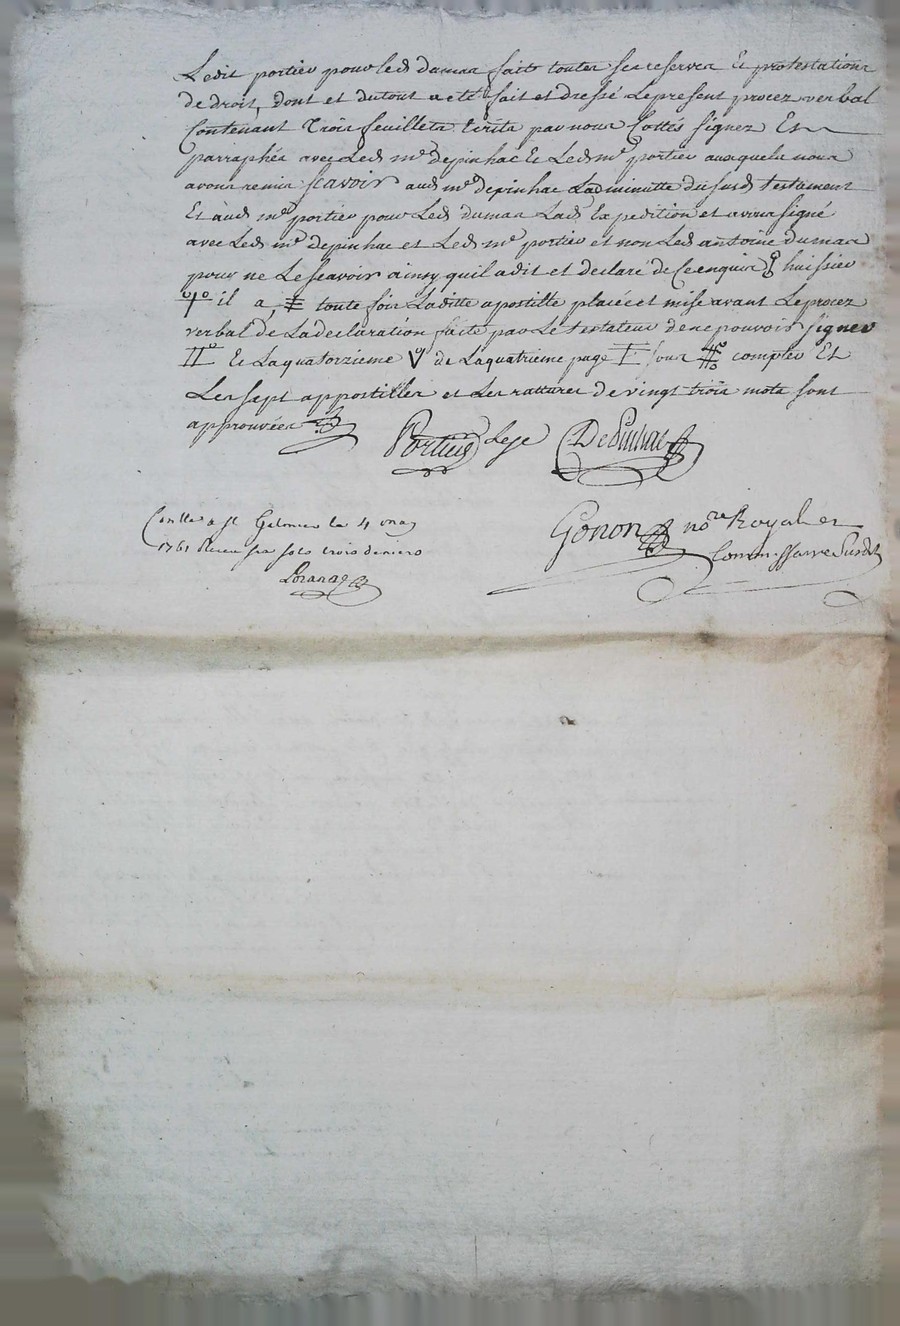 Ledit portier pour led dumas fait toutes ses reserves Et protestations
de droit, dont et du tout a eté fait et dressé le present procez verbal
Contenant trois feuillets Ecrits par nous Cottés signez Et
parraphés avec Led me depinhac Et Led me portier auxquels nous
avons remis scavoir aud me depinhac La diminutte du susd testament
Et aud me portier pour Led dumas Lad Expedition et avons signé
avec Led me depinhac et Led me portier et non Led antoine dumas
pour ne Le scavoir ainsy quil a dit et declaré de ce enquis huissier
il a, toute fois Laditte apostille placée et mise avant Le procez
verbal de La declaration faite par Le testateur de ne pouvoir signer
Et La quatorzieme de La quatrieme page sous compter Et
Les sept appostilles et Les ratturer de vingt trois mots sont
approuvées
Portier DePinhac
Conlle a st le 4 may
1761 Receu sols trois deniers
Gonon nore Royal et
Commissaire Susdt